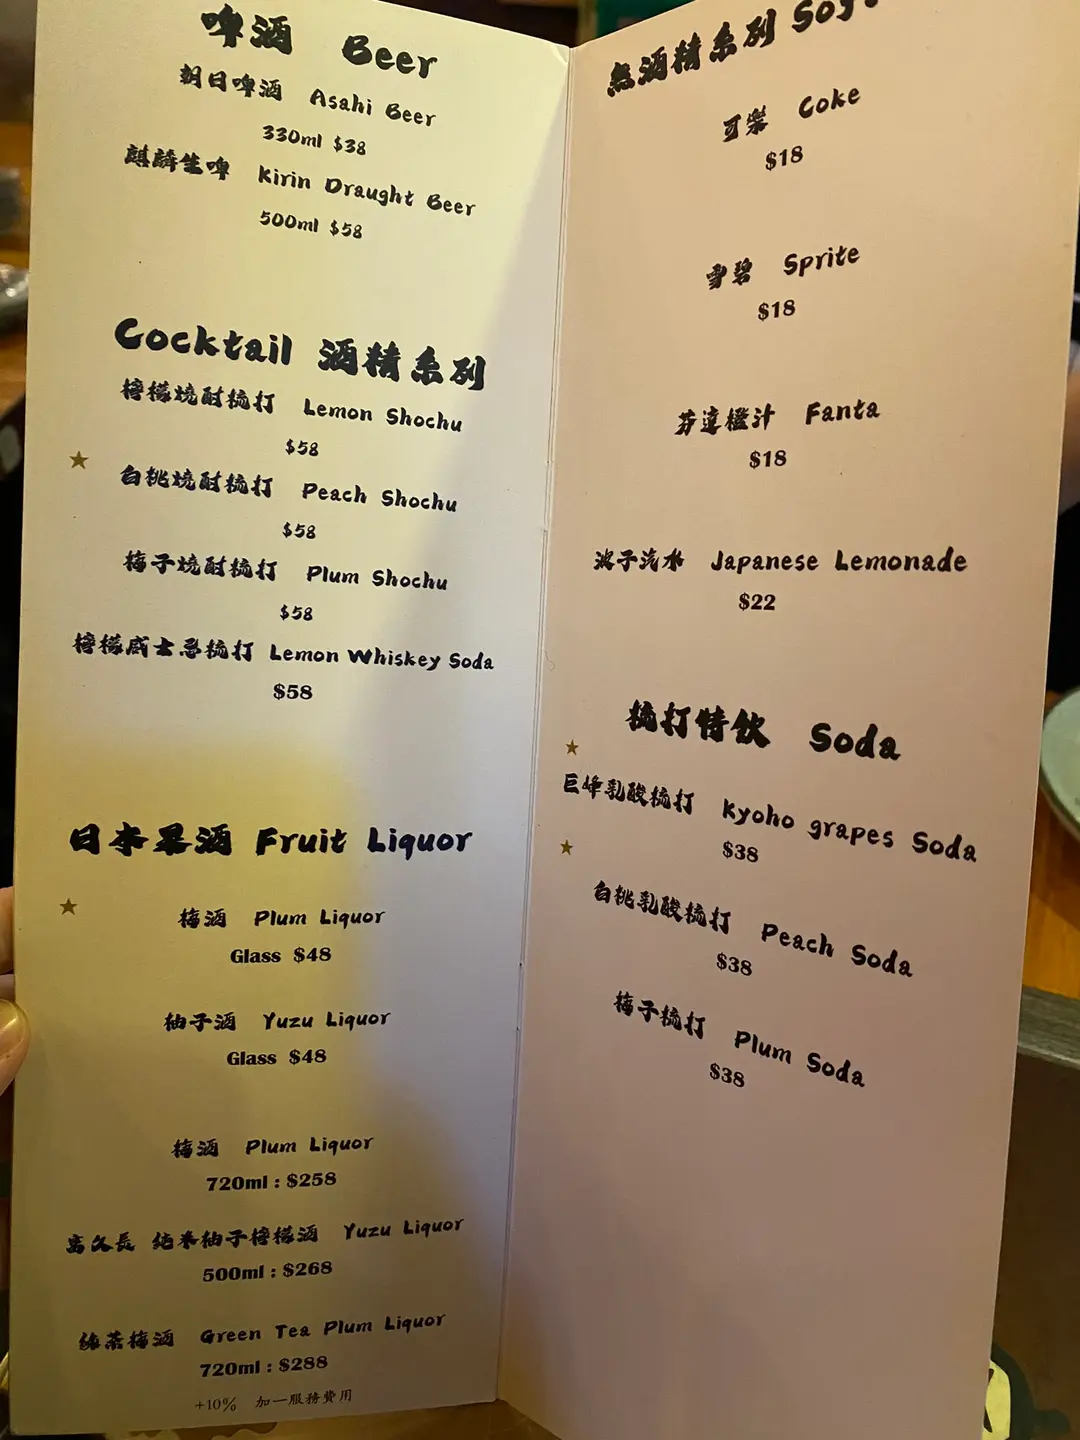 啤酒 Beer
朝日啤酒 Asahi Beer
330ml $38
麒麟生啤 Kirin Draught Beer
500ml $58
Cocktail 酒精系列
檸檬燒酎梳打 Lemon Shochu
$58
白桃燒酎梳打 Peach Shochu
$58
梅子燒酎梳打 Plum Shochu
$58
檸檬威士忌梳打 Lemon Whiskey Soda
$58
日本果酒 Fruit Liquor
梅酒 Plum Liquor
Glass $48
柚子酒 Yuzu Liquor
Glass $48
梅酒 Plum Liquor
720ml : $258
富久長 純米柚子檸檬酒 Yuzu Liquor
500ml : $268
綠茶梅酒 Green Tea Plum Liquor
720ml : $288
+10% 加一服務費用
無酒精系列
可樂 Coke
$18
雪碧 Sprite
$18
芬達橙汁 Fanta
$18
波子汽水 Japanese Lemonade
$22
梳打特飲 Soda
巨峰乳酸梳打 Kyoho grapes Soda
$38
白桃乳酸梳打 Peach Soda
$38
梅子梳打 Plum Soda
$38